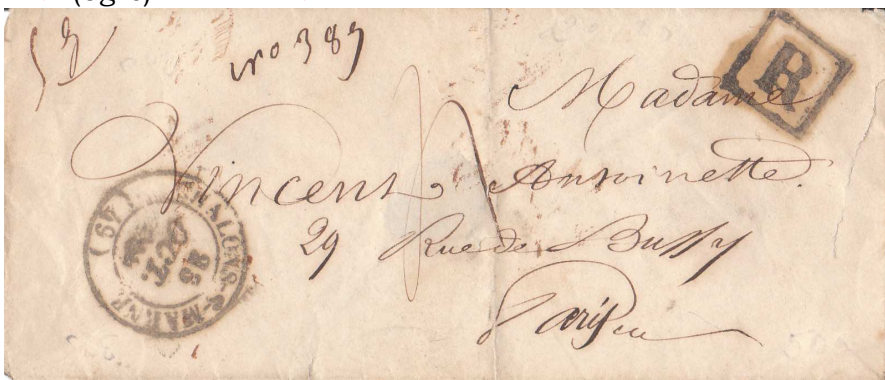 n° 389
R
Madame
Vincent Antoinette.
29 Rue de Bussy
Paris
CHALONS-S-MARNE (49)
OCT.